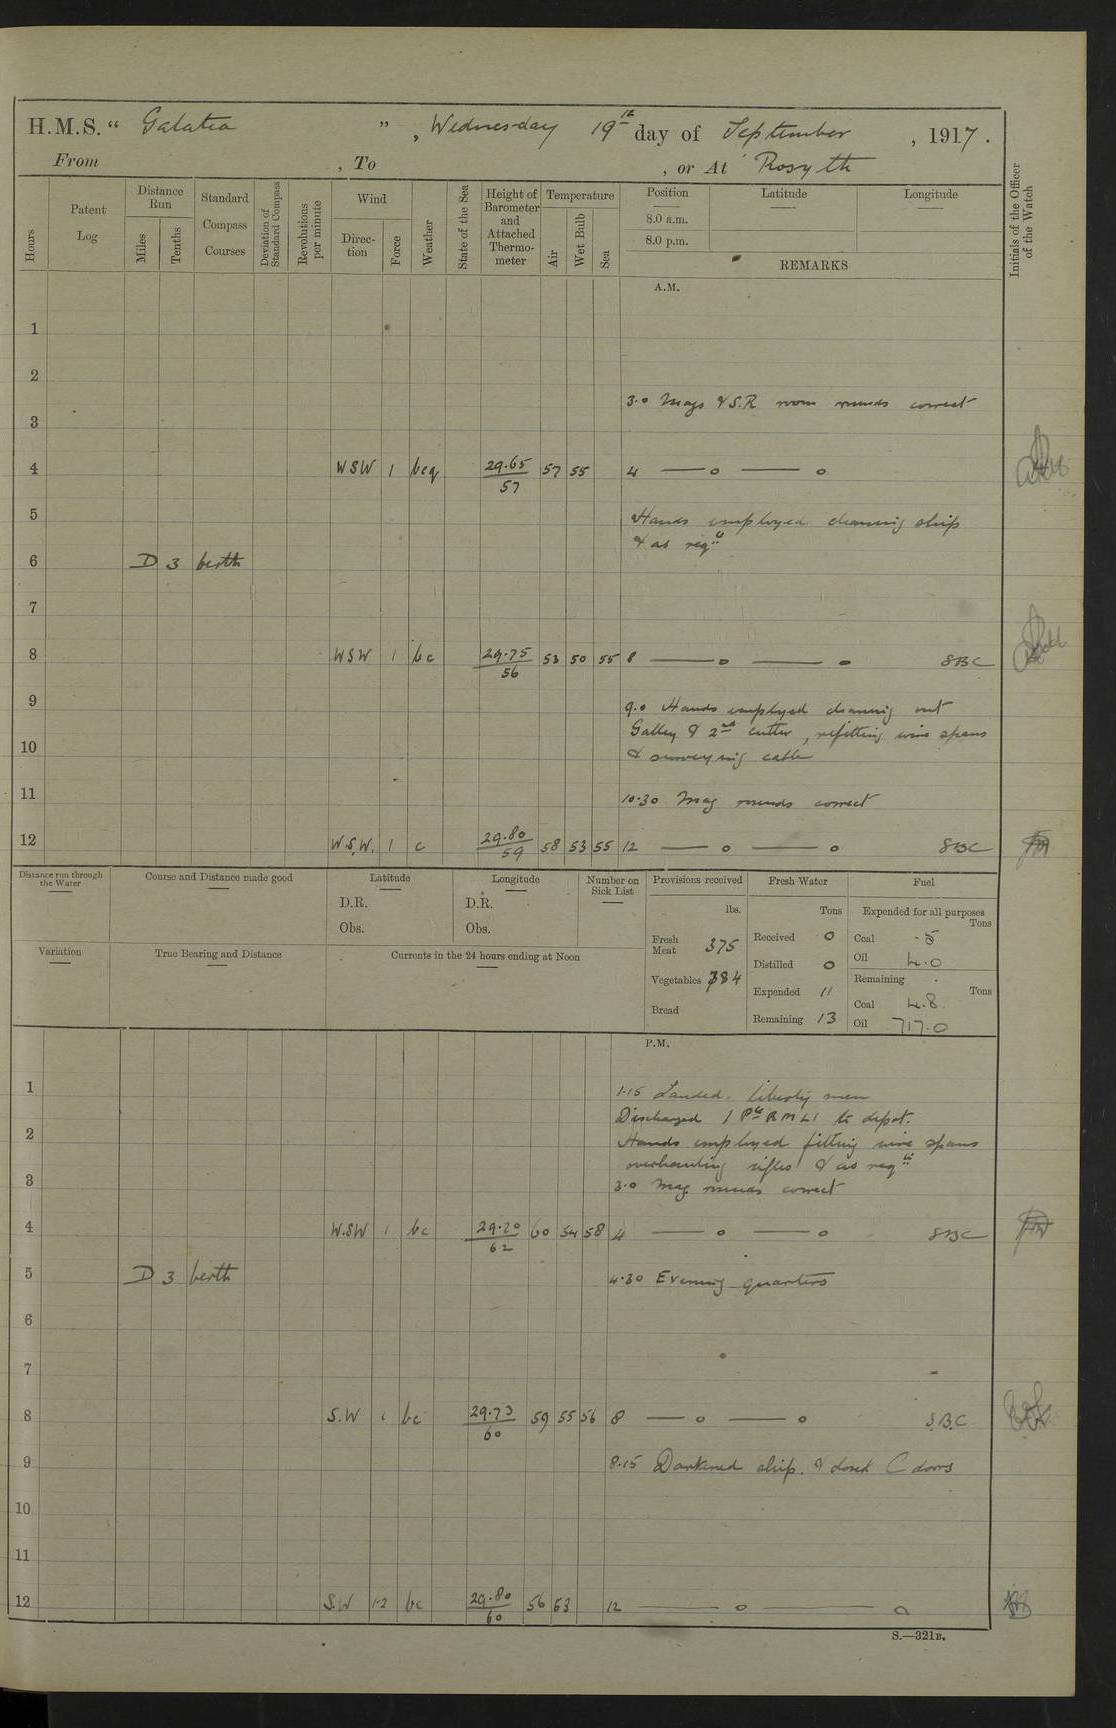 H.M.S. “ Galatea ” , Wednesday 19th day of September , 1917 .
From , To , or At Rosyth
Hours
Patent Log
Distance Run
Miles
Tenths
Standard Compass Courses
Deviation of Standard Compass
Revolutions per minute
Wind
Direction
Force
Weather
State of the Sea
Height of Barometer and Attached Thermometer
Temperature
Air
Wet Bulb
Sea
Position Latitude Longitude
8.0 a.m.
8.0 p.m.
REMARKS
Initials of the Officer of the Watch
A.M.
1
2
3.0 Mags & S.R room rounds correct
3
4 WSW 1 bcq 29.65/57 57 55 4 —o —o
5 Hands employed cleaning ship
& as reqd
6 D 3 berth
7
8 WSW 1 bc 29.75/56 53 50 55 8 —o —o SBC
9 9.0 Hands employed cleaning out
Galley & 2nd cutter, refitting wire spans
10 & surveying cable
11 10.30 Mag rounds correct
12 W.S.W. 1 c 29.80/59 58 53 55 12 —o —o SBC
Distance run through the Water
Course and Distance made good
Latitude
D.R.
Obs.
Longitude
D.R.
Obs.
Number on Sick List
Provisions received
lbs.
Fresh Meat 375
Vegetables 384
Bread
Fresh Water
Tons
Received 0
Distilled 0
Expended 11
Remaining 13
Fuel
Expended for all purposes
Tons
Coal .5
Oil 4.0
Remaining
Tons
Coal 4.8
Oil 717.0
Variation
True Bearing and Distance
Currents in the 24 hours ending at Noon
P.M.
1 1.15 Landed liberty men
Discharged 1 Pte R M L I to depot.
2 Hands employed fitting wire spans
overhauling rifles & as reqd
3 3.0 Mag rounds correct
4 W.SW 1 bc 29.70/62 60 54 58 4 —o —o SBC
5 D 3 berth 4.30 Evening quarters
6
7
8 S.W 1 bc 29.73/60 59 55 56 8 —o —o S.B.C
9 8.15 Darkened ship. & closed C doors
10
11
12 S.W 1-2 bc 29.80/60 56 53 12 —o —o
S.—321B.